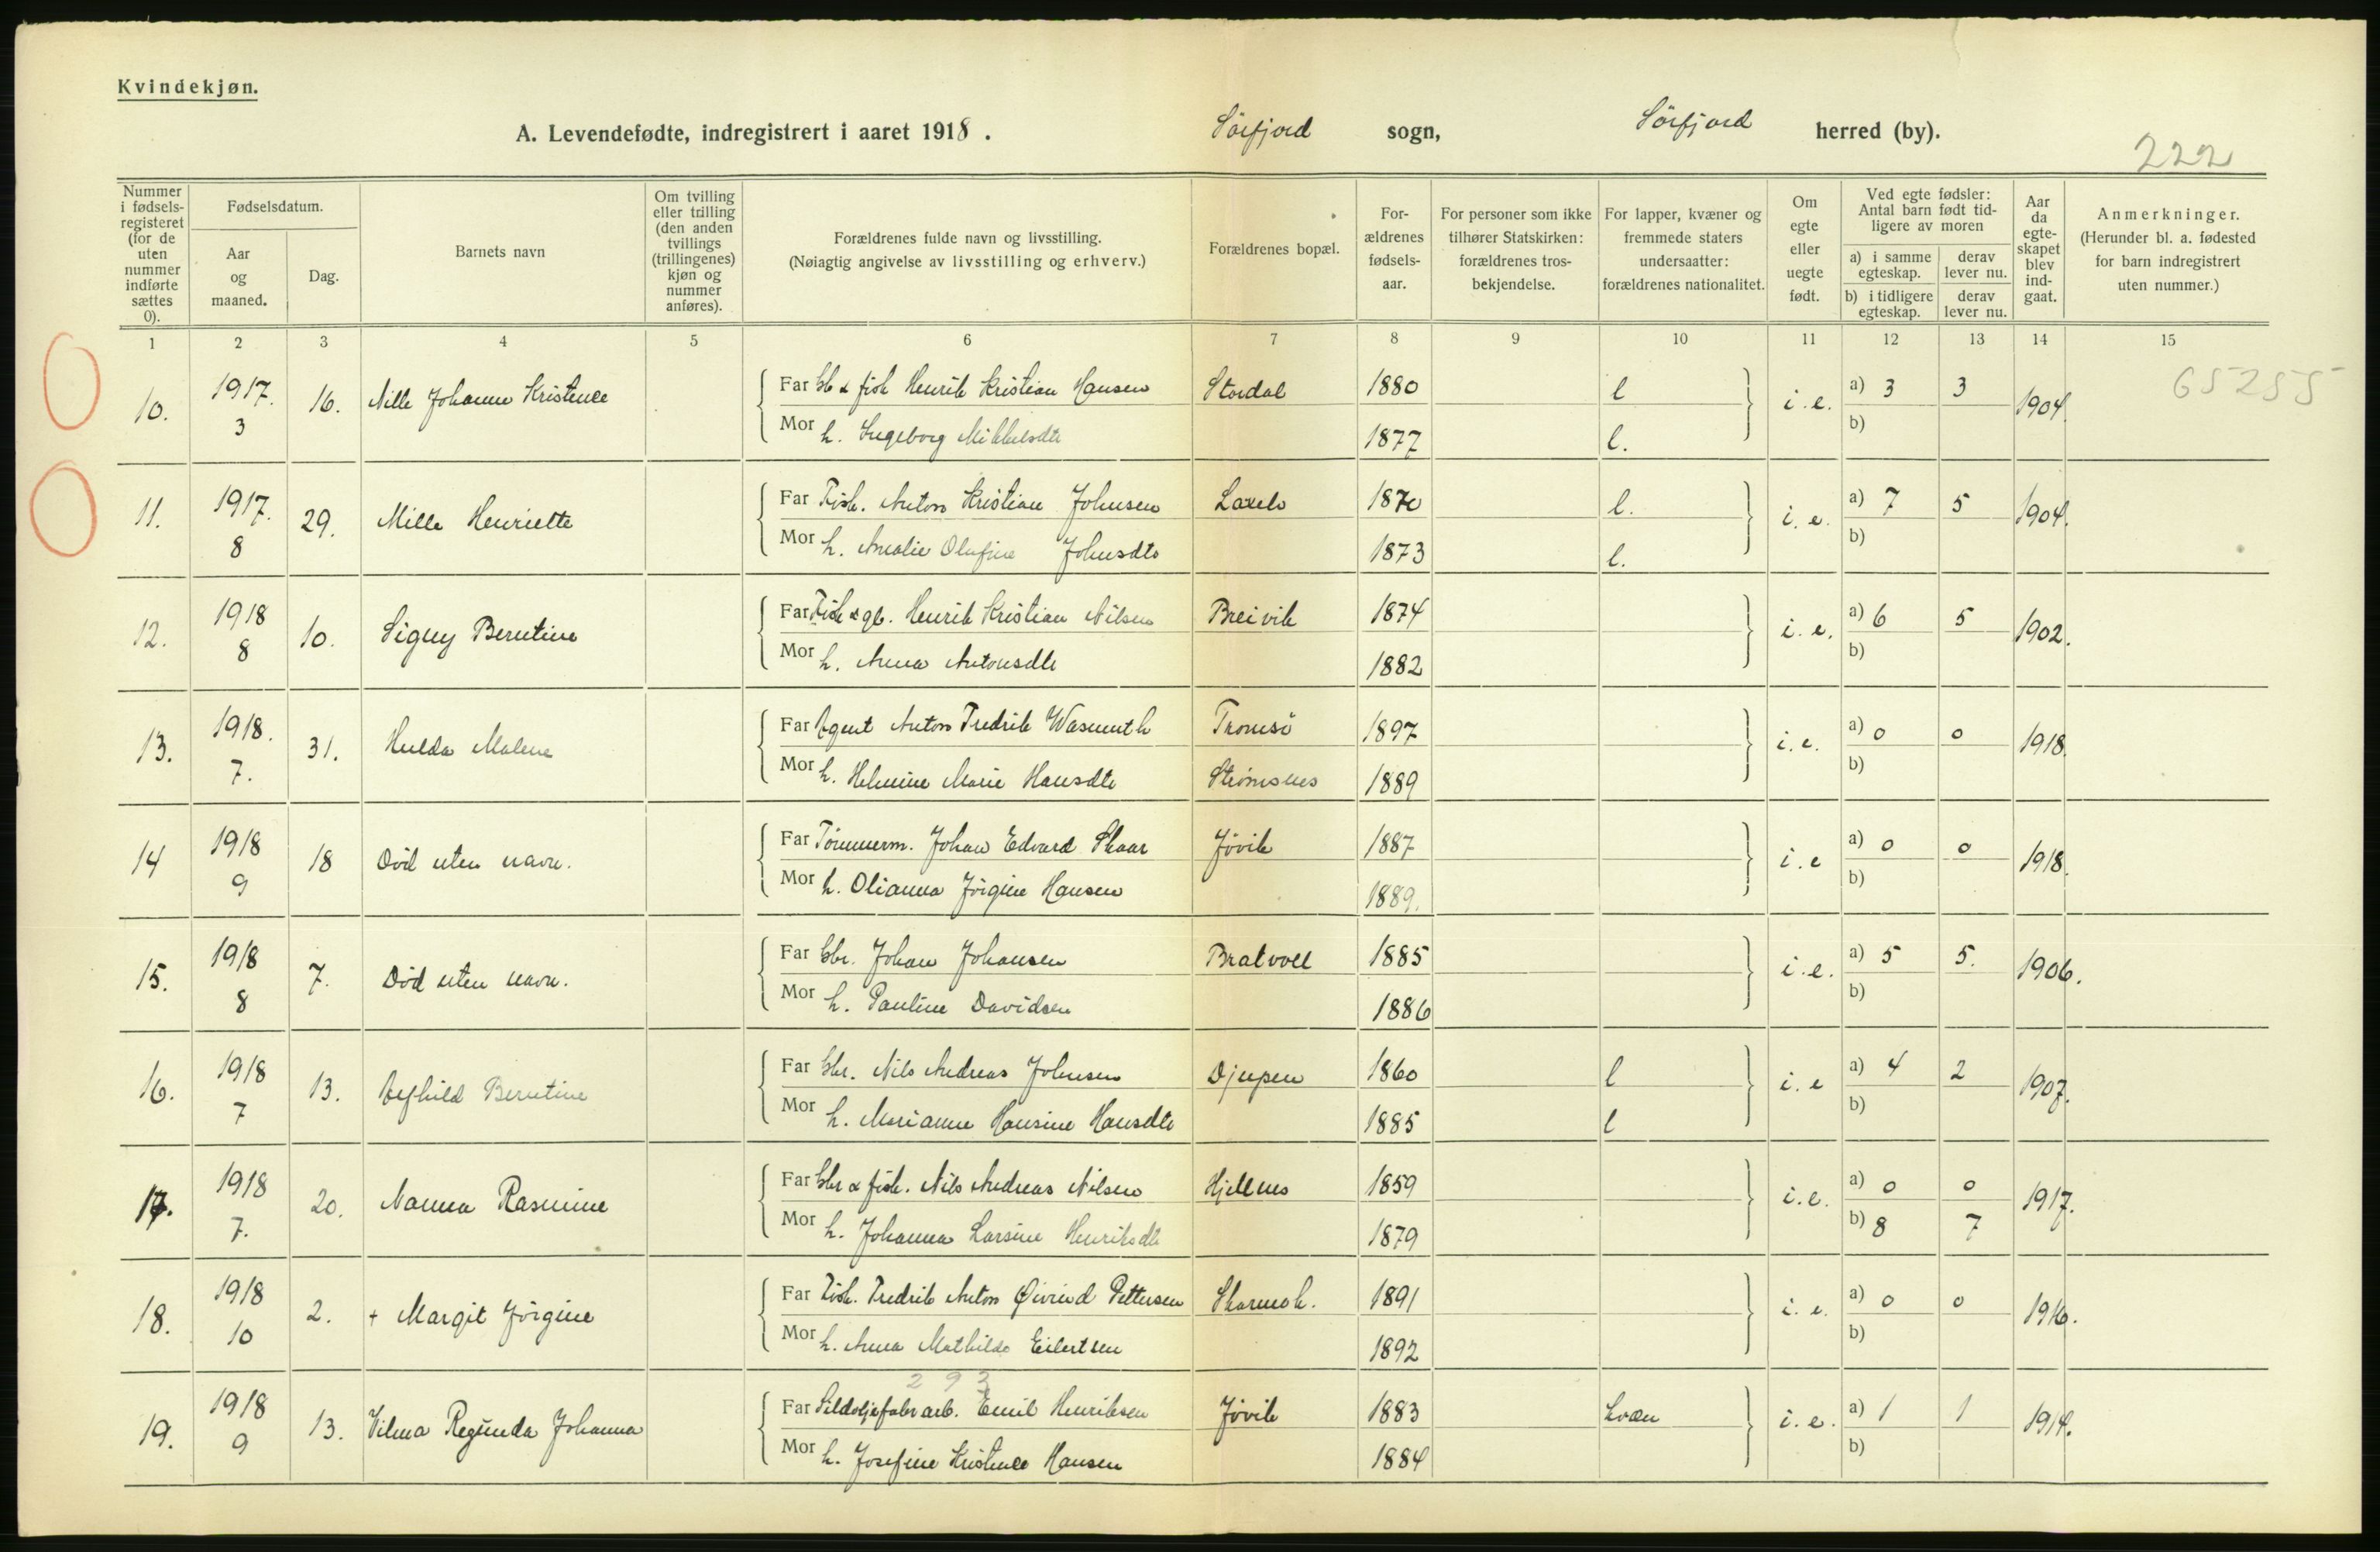 Kvindekjøn.
A. Levendefødte, indregistrert i aaret 1918. Sörfjord sogn, Sörfjord herred (by).
222
Nummer i fødsels-registeret (for de uten nummer indførte sættes 0).
Fødselsdatum.
Aar og maaned.
Dag.
Barnets navn
Om tvilling eller trilling (den anden tvillings (trillingenes) kjøn og nummer anføres).
Forældrenes fulde navn og livsstilling.
(Nøiagtig angivelse av livsstilling og erhverv.)
Forældrenes bopæl.
For-ældrenes fødsels-aar.
For personer som ikke tilhører Statskirken: forældrenes tros-bekjendelse.
For lapper, kvæner og fremmede staters undersaatter: forældrenes nationalitet.
Om egte eller uegte født.
Ved egte fødsler: Antal barn født tid-ligere av moren
a) i samme egteskap.
derav lever nu.
b) i tidligere egteskap.
derav lever nu.
Aar da egte-skapet blev ind-gaat.
Anmerkninger.
(Herunder bl. a. fødested for barn indregistrert uten nummer.)
1 2 3 4 5 6 7 8 9 10 11 12 13 14 15
65255
10. 1917. 3 16. Nille Johanne Kristence
Far Gb & fisk Henrik Kristian Hansen Stordal 1880 l i.e. a) 3 3 1904.
Mor h. Ingeborg Mikkelsdtr 1877 l. b)
11. 1917. 8 29. Mille Henriette
Far Fisk. Anton Kristian Johnsen 1870 l. i.e. a) 7 5 1904.
Mor h. Amalie Olufine Johnsdtr 1873 l. b)
12. 1918 8 10. Signy Berntine
Far Fisk & gb. Henrik Kristian Nilsen Breivik 1874 i.e. a) 6 5 1902.
Mor h. Anna Antonsdtr 1882 b)
13. 1918. 7. 31. Hulda Malene
Far Agent Anton Fredrik Wasmuth Tromsö 1897 i.e. a) 0 0 1918.
Mor h. Helmine Marie Hansdtr Strömsnes 1889 b)
14 1918 9 18 Död uten navn.
Far Tömmerm. Johan Edvard Skaar Jövik 1887 i.e a) 0 0 1918.
Mor h. Olianna Jörgine Hansen 1889. b)
15. 1918 8 7. Död uten navn.
Far Gbr. Johan Johansen Bratvoll 1885 i.e. a) 5 5. 1906.
Mor h. Pauline Davidsen 1886 b)
16. 1918 7 13. Berntine
Far Gbr. Nils Andreas Johnsen Djupen 1860 l i.e a) 4 2 1907.
Mor h. Marianne Hansine Hansdtr 1885 l b)
17. 1918 7. 20. Nanna Rasmine
Far Gbr & fisk. Nils Andreas Nilsen Hjellnes 1859 i.e. a) 0 0 1917.
Mor h. Johanna Larsine Henriksdtr 1879 b) 8 7
18. 1918 10 2. + Margit Jörgine
Far Fisk. Fredrik Anton Øivind Pettersen 1891 i.e. a) 0 0 1916.
Mor h. Anna Mathilde Eilertsen 1892 b)
293
19. 1918 9 13. Vilma Regunda Johanna
Far Sildoljefabr arb. Emil Henriksen Jövik 1883 kvæn i.e. a) 1 1 1914.
Mor h. Josefine Kristence Hansen 1884 b)